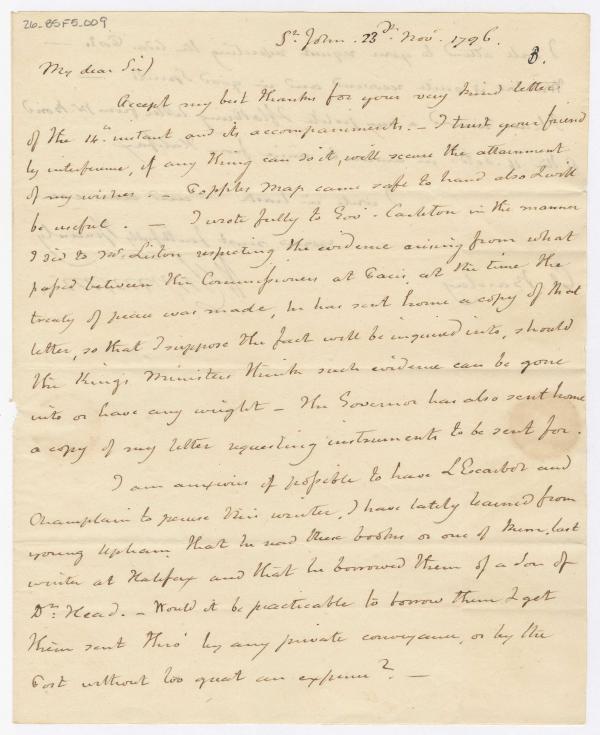 26-85F5-009
St. John. 23d. Nov. 1796.
3.
My dear Sir)
Accept my best thanks for your very kind letter
of the 14th instant and its accompaniments. - I trust your friend
ly interference, if any thing can do it, will secure the attainment
of my wishes. - Copples Map came safe to hand also & will
be useful. - I wrote fully to Gov. Carleton in the manner
I did to Mr. Liston respecting the evidence arising from what
passed between the Commissioners at Paris, at the time the
treaty of peace was made, he has sent home a copy of that
letter, so that I suppose the fact will be inquired into, should
the Kings Ministers think such evidence can be gone
into or have any weight - The Governor has also sent home
a copy of my letter requesting instruments to be sent for.
I am anxious if possible to have L'Escarbot and
Champlain to peruse this winter, I have lately learned from
young Upham that he read these books or one of them, last
winter at Halifax and that he borrowed them of a Son of
Dr. Head. - Would it be practicable to borrow them & get
them sent thro' by any private conveyance, or by the
Post without too great an expence? -